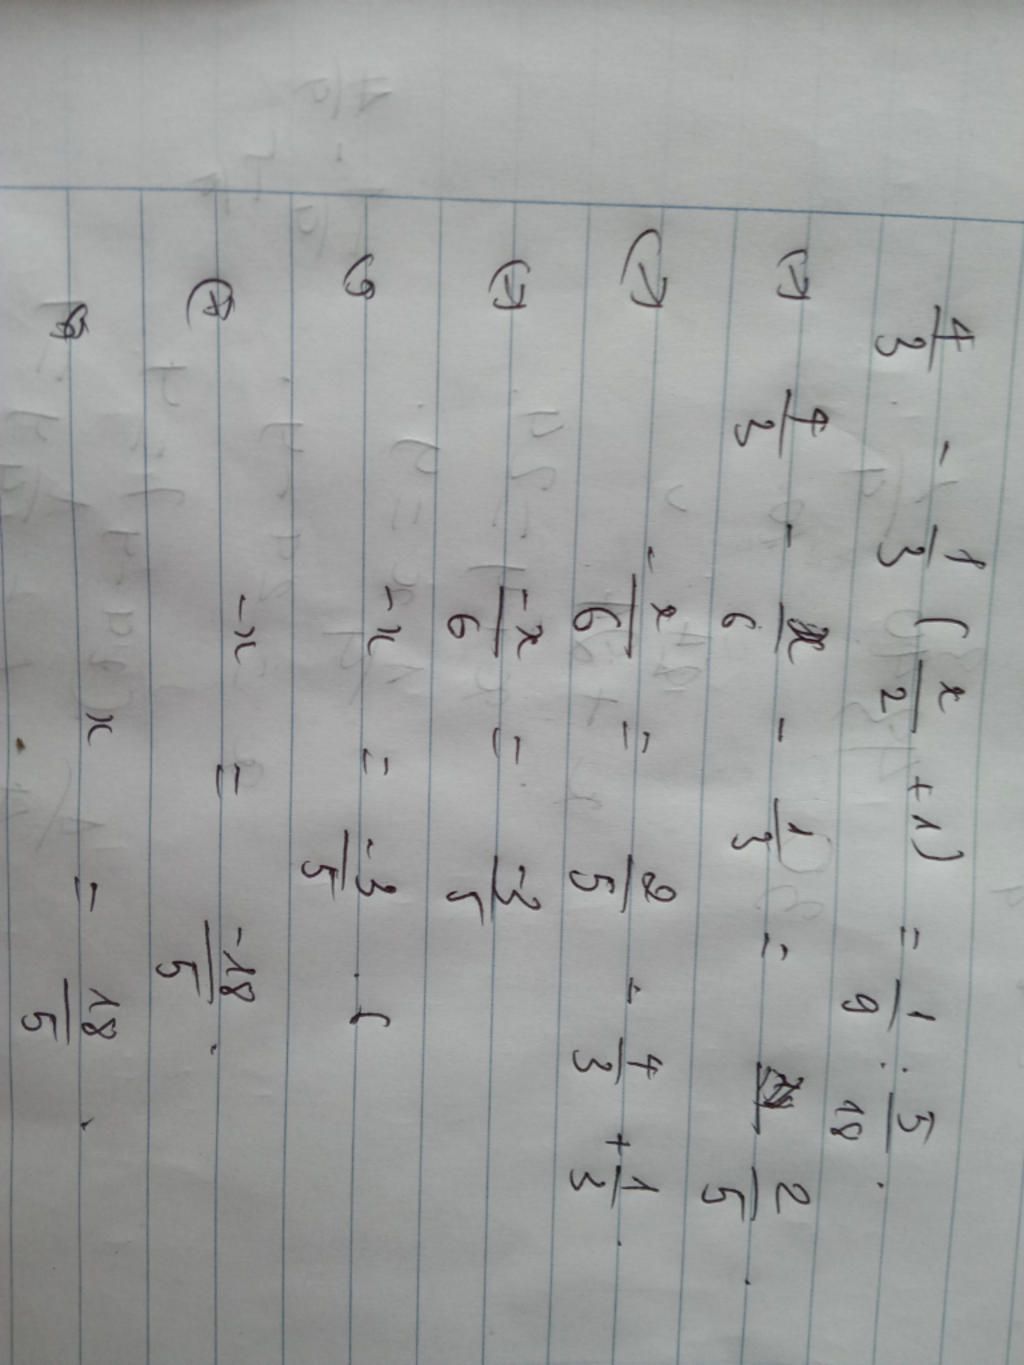 4/3 - 1/3 (x/2 + 1) = 1/9 : 5/18 .
(→) 4/3 - x/6 - 1/3 = 2/5 .
(→) - x/6 = 2/5 - 4/3 + 1/3 .
(→) -x/6 = -3/5
-x = -3/5 . 6
(→) -x = -18/5 .
x = 18/5 .